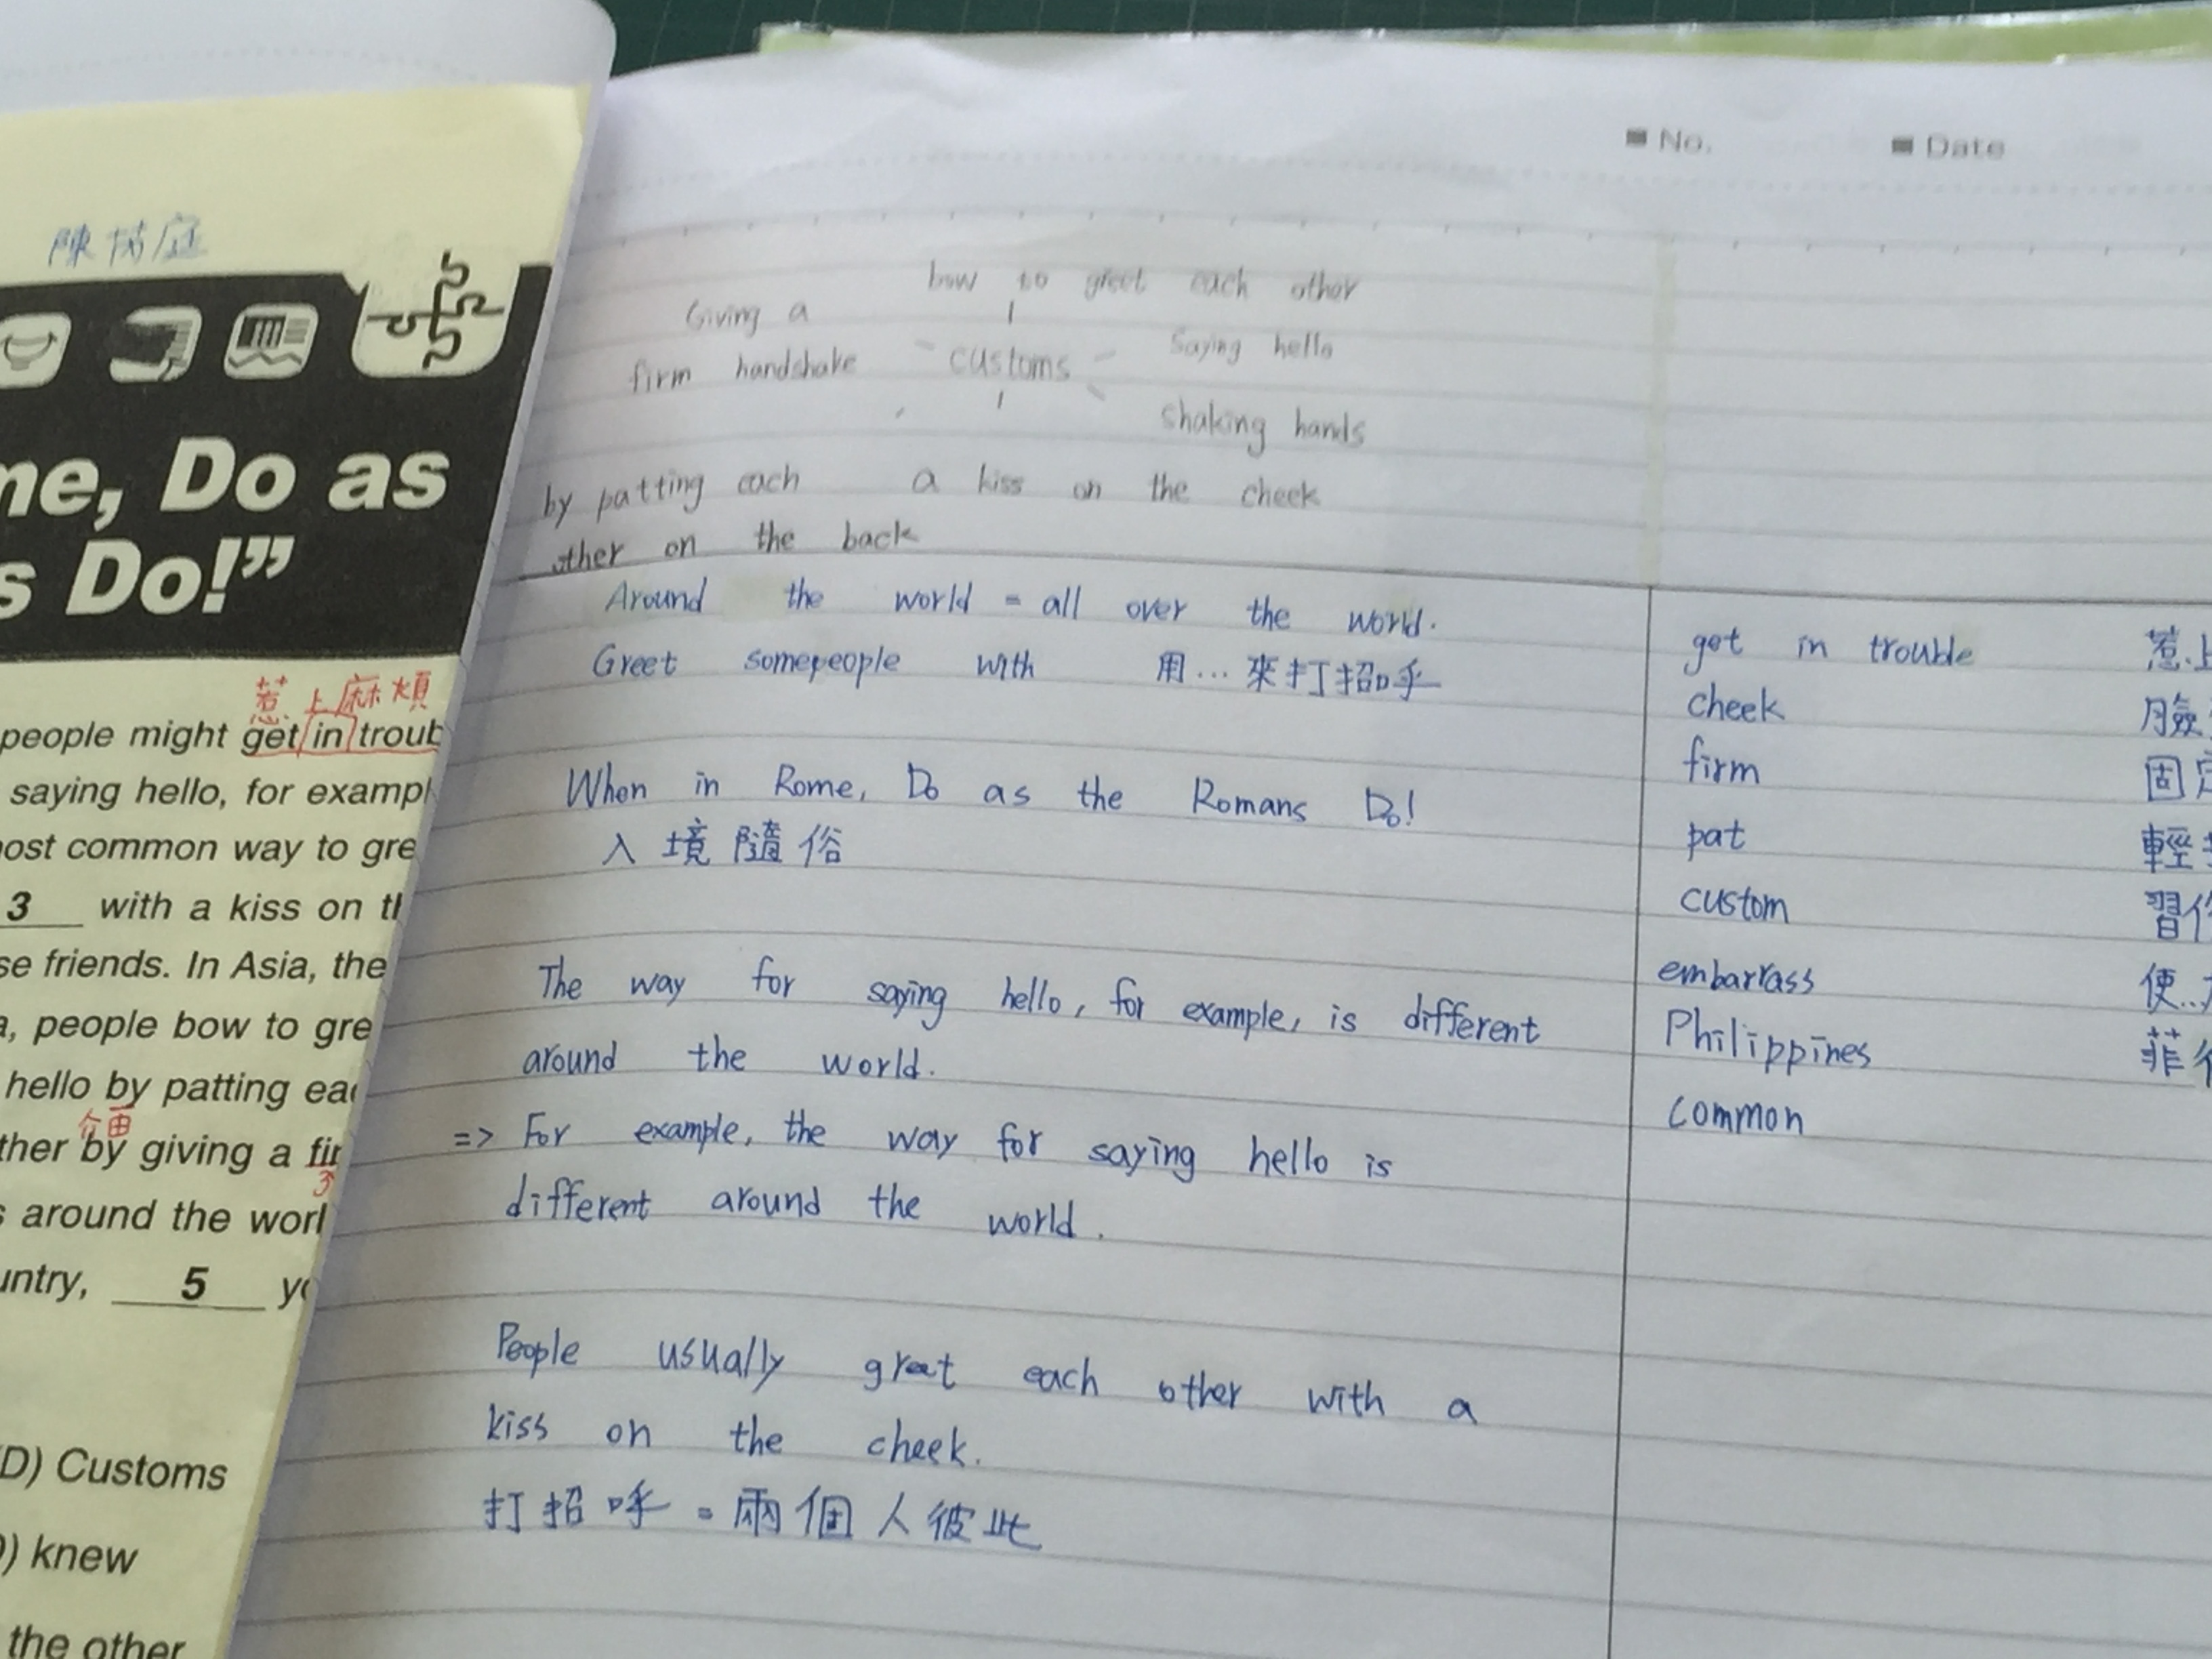 陳
me, Do as
s Do!”
惹上麻煩
people might get in troub
saying hello, for exampl
ost common way to gre
3 with a kiss on th
se friends. In Asia, the
a, people bow to gre
hello by patting eac
介
ther by giving a fir
3
s around the worl
untry, 5 yo
D) Customs
) knew
the other
■ No. ■ Date
bow to greet each other
Giving a
firm handshake
customs
Saying hello
shaking hands
by patting each
other on the back
a kiss on the cheek
Around the world = all over the world.
Greet somepeople with 用...來打招呼
When in Rome, Do as the Romans Do!
入境隨俗
The way for saying hello, for example, is different
around the world.
=> For example, the way for saying hello is
different around the world.
People usually great each other with a
kiss on the cheek.
打招呼=兩個人彼此
get in trouble 惹上
cheek 臉
firm 固定
pat 輕
custom 習俗
embarrass 使...
Philippines 菲
common